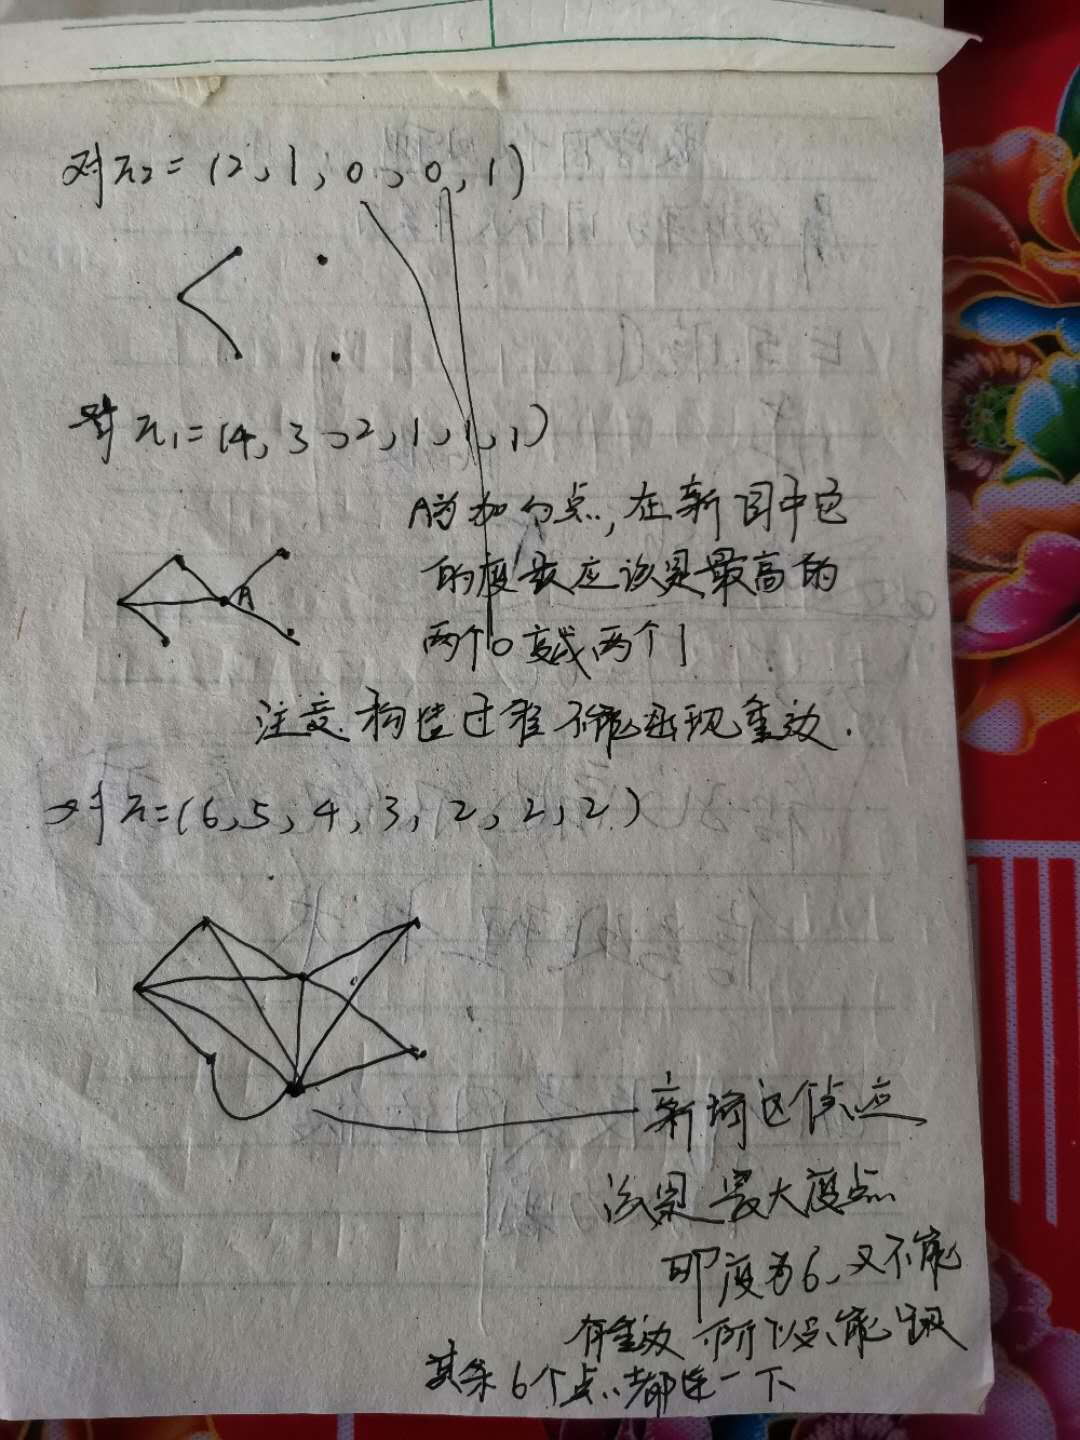 对π₂=(2,1,0,0,1)
对π₁=(4,3,2,1,1,1)
A为加的点,在新图中它
A
的度数应该是最高的
两个0变成两个1
注意构造过程不能出现重边.
对π=(6,5,4,3,2,2,2)
新增这个点应
该是最大度点
即度为6,又不能
有重边 所以只能跟
其余6个点都连一下